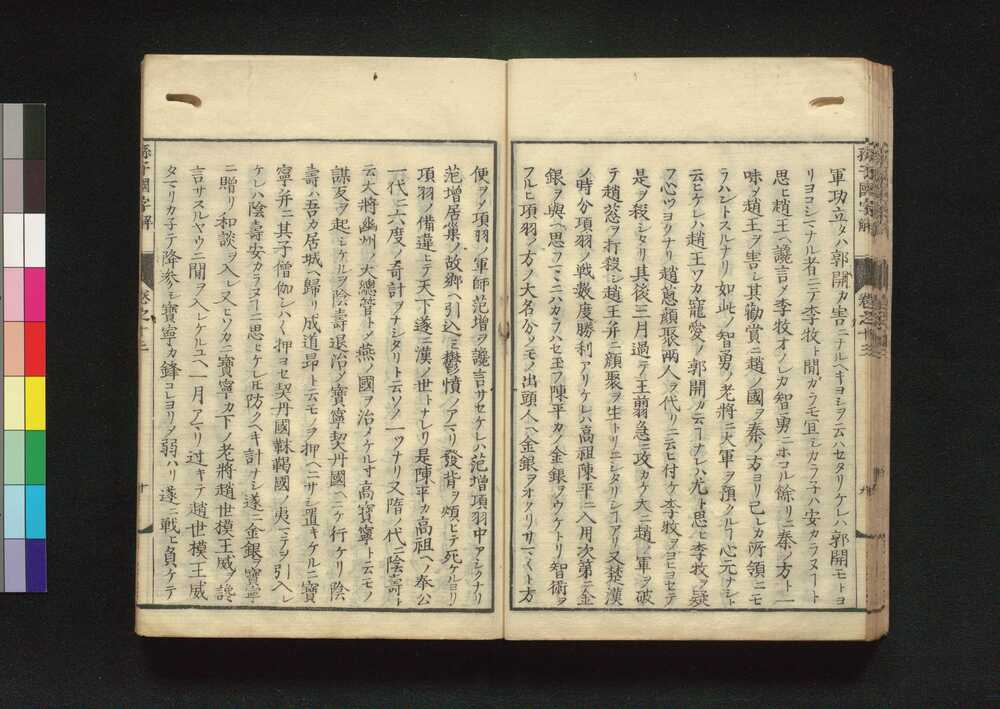 軍功立タハ郭開カ害ニナルヘキヨシヲ云ハセタリケレハ郭開モトヨ
リヨコシマナル者ニテ李牧ト聞ガラモ宜シカラネハ安カラヌヿト
思ヒ趙王ヘ讒言メ李牧オノレカ智勇ニホコル餘リニ秦ノ方ト一
味メ趙王ヲ害シ其勧賞ニ趙ノ國ヲ秦ノ方ヨリ己レカ所領ニモ
ラハントスルナリ如此ノ智勇ノ老將ニ大軍ヲ預クルヿ心元ナシト
云ヒケレハ趙王ワカ寵愛ノ郭開カ云ヿナレハ尤ト思ヒ李牧ヲ疑
フ心ツヨクナリ趙葱顔聚两人ヲ代リニ云ヒ付ケ李牧ヲヨヒヨセテ
是ヲ殺シタリ其後三月過テ王翦急ニ攻カケ大ニ趙ノ軍ヲ破
テ趙葱ヲ打殺シ趙王并ニ顔聚ヲ生トリニシタリシヿアリ又楚漢
ノ時分項羽ノ戦数度勝利アリケレハ高祖陳平ニ入用次第ニ金
銀ヲ與ヘ思フマヽニハカラハセ玉フ陳平カノ金銀ヲウケトリ智術ヲ
フルヒ項羽ノ方ノ大名分ソモノ出頭人ヘ金銀ヲオクリサマ〱ト方
孫子國字解
卷之十三
九
便ヲメ項羽ノ軍師范增ヲ讒言サセケレハ范增項羽中アシクナリ
范增居巢ノ故鄉ヘ引込ミ鬱憤ノアマリ發背ヲ煩ヒテ死ケルヨリ
項羽ノ備違ヒテ天下遂ニ漢ノ世トナレリ是陳平カ高祖ヘノ奉公
一代ニ六度ノ奇計ヲナシタリト云ソノ一ツナリ又隋ノ代ニ陰壽ト
云大將幽州ノ大總管トメ燕ノ國ヲ治メケルオ高寳寧ト云モノ
謀反ヲ起シケルヲ陰壽退治メ寳寧契丹國ヘニケ行ケリ陰
壽ハ吾カ居城ヘ歸リ成道昻ト云モノヲ押ヘニサシ置キケルニ寳
寧并ニ其子僧伽シハ〱押ヨセ契丹國靺鞨國ノ夷マテヲ引入レ
ケレハ陰壽安カラヌヿニ思ヒケレ𪜈防クヘキ計ナシ遂ニ金銀ヲ寳寧
ニ贈リ和談ヲ入レ又ヒソカニ寳寧カ下ノ老將趙世模王威ヲ讒
言サスルヤウニ閒ヲ入レケルユヘ一月アマリ过キテ趙世模王威
タマリカ子テ降参シ寳寧カ鋒コレヨリメ弱ハリ遂ニ戦ヒ負ケテ
孫子國字解
卷之十三
十